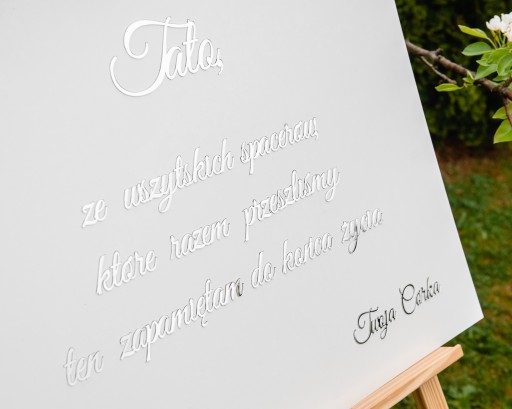 Tato,
ze wszystkich spacerów,
które razem przeszliśmy
ten zapamiętam do końca życia
Twoja Córka